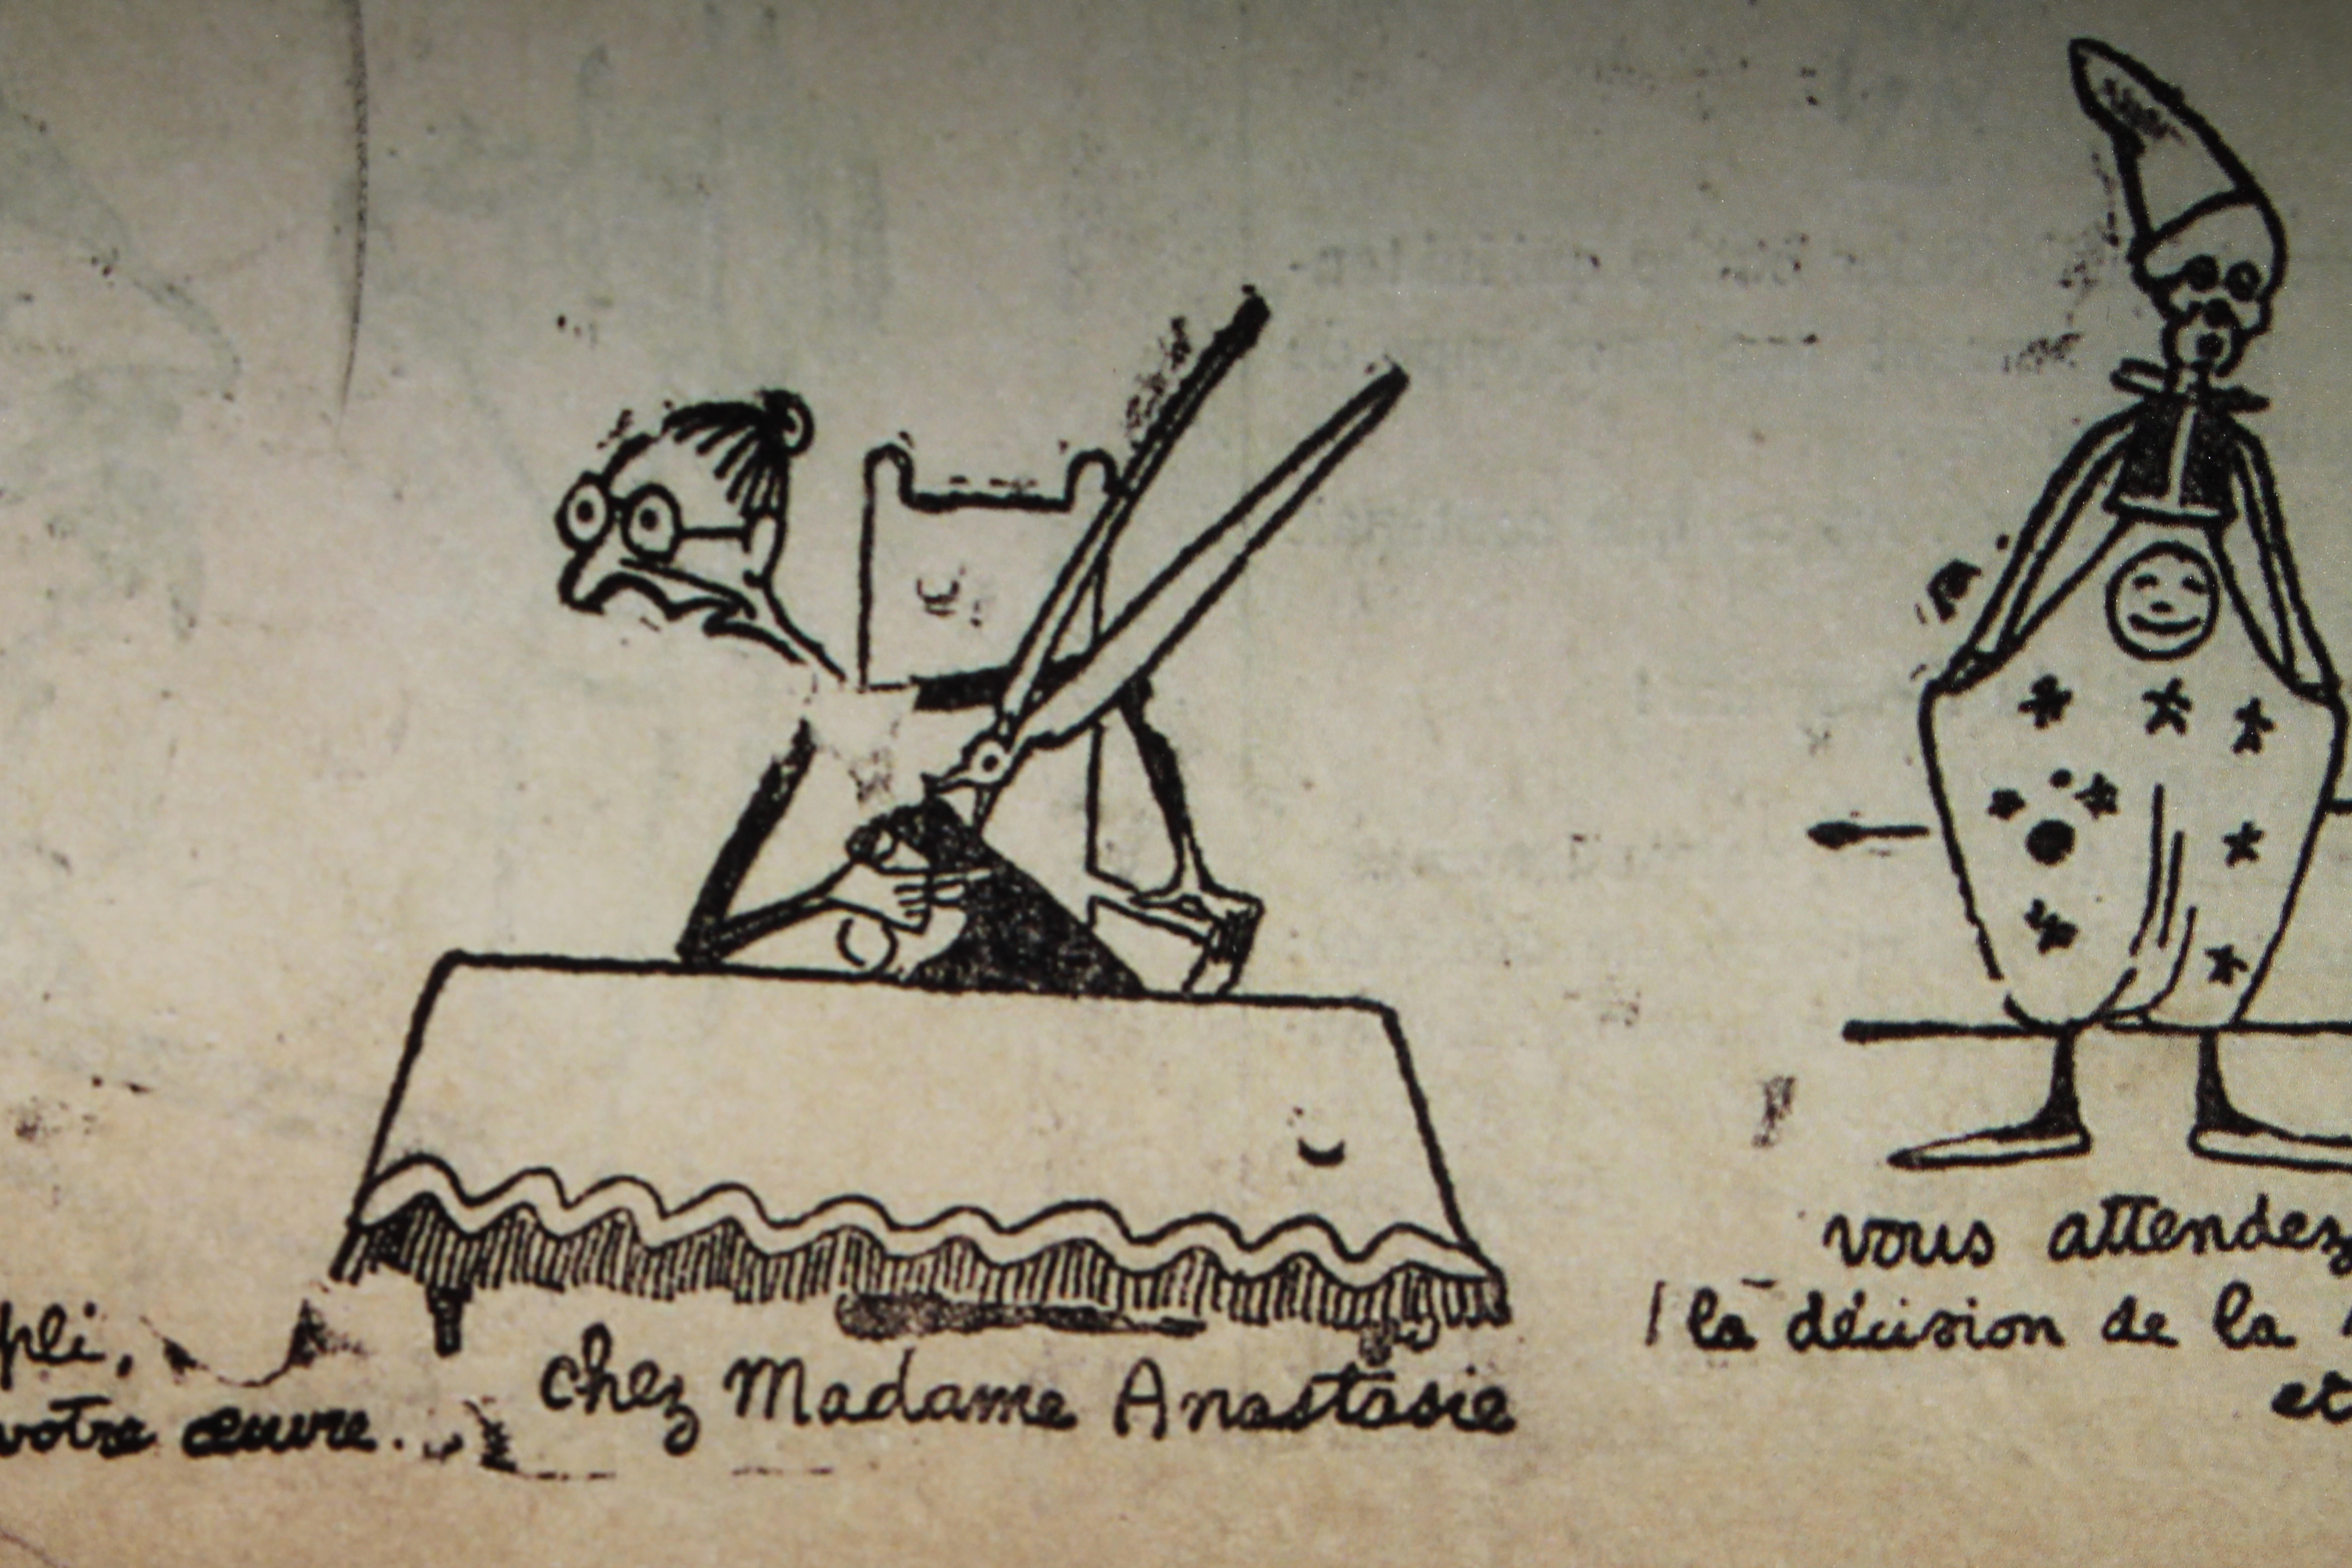 pli,
votre œuvre...
chez Madame Anastasie
vous attendez
la décision de la
et